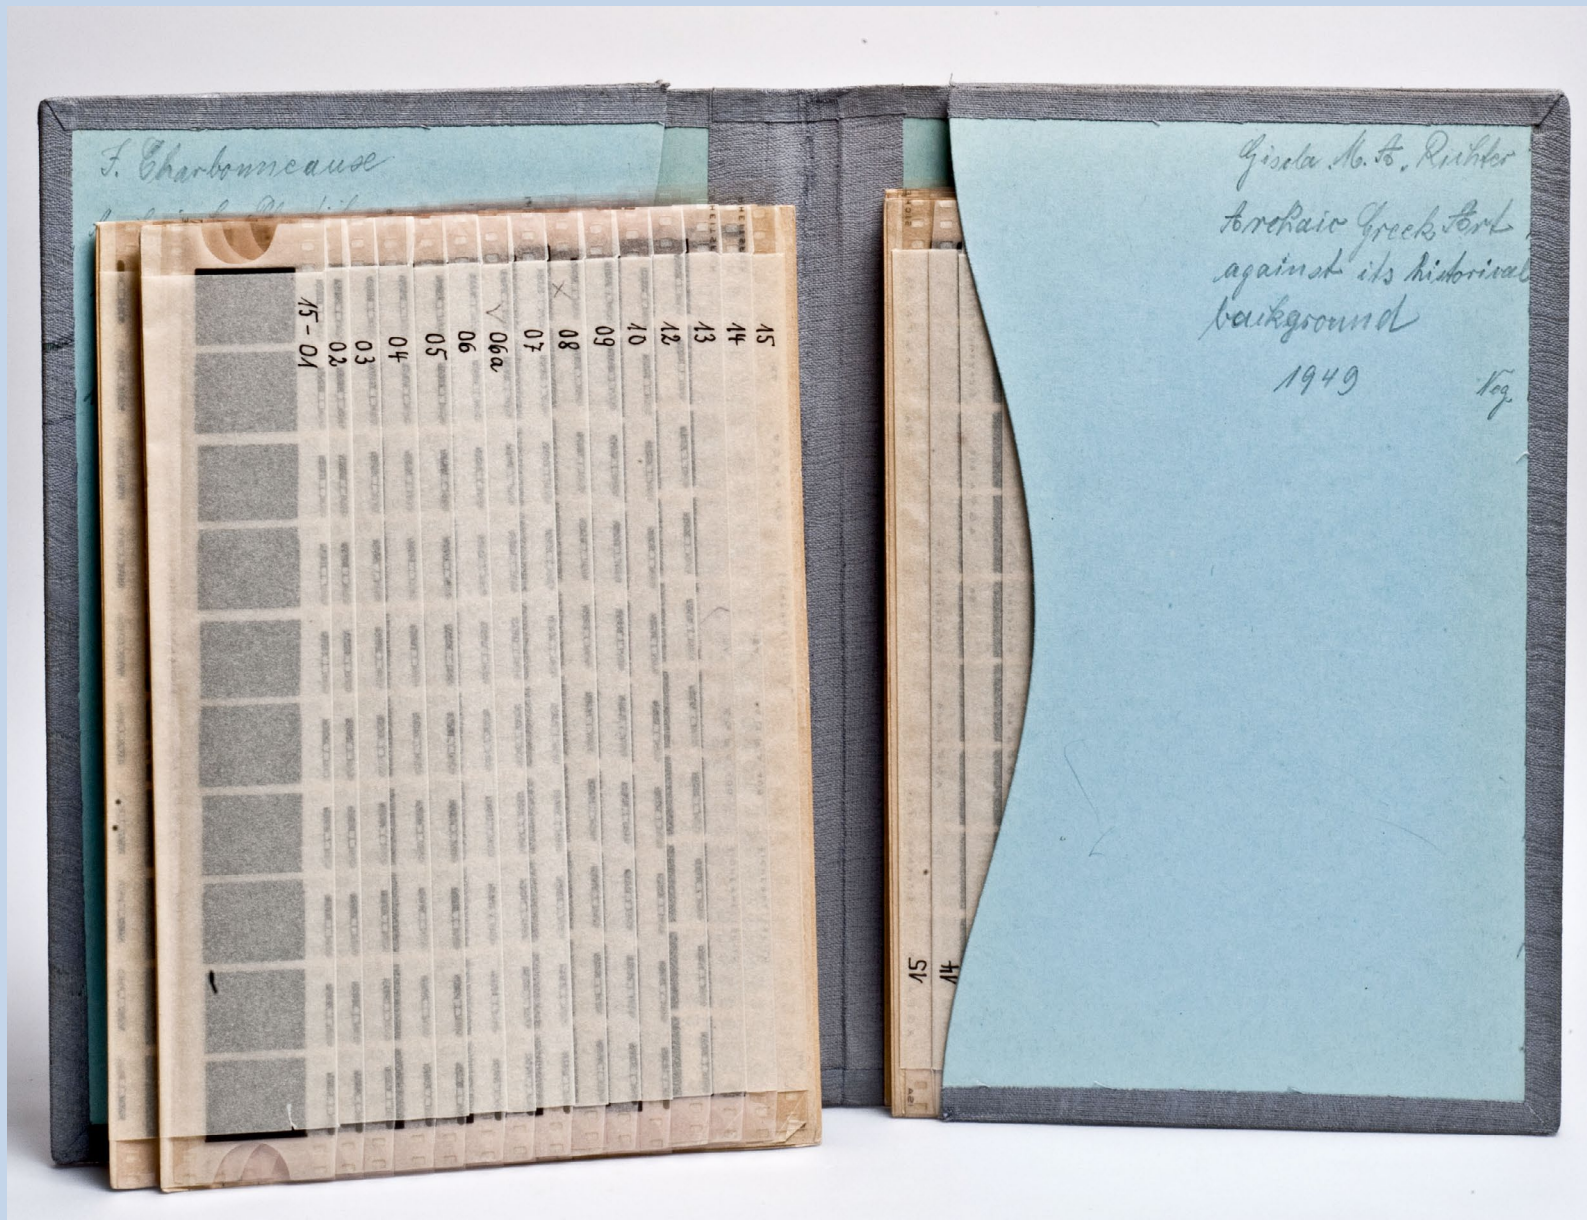 J. Charbonneause
15-01
02
03
04
05
06
06a
07
08
09
10
12
13
14
15
Gisela M. A. Richter
Archaic Greek Art
against its historical
background
1949
Neg.
15
14